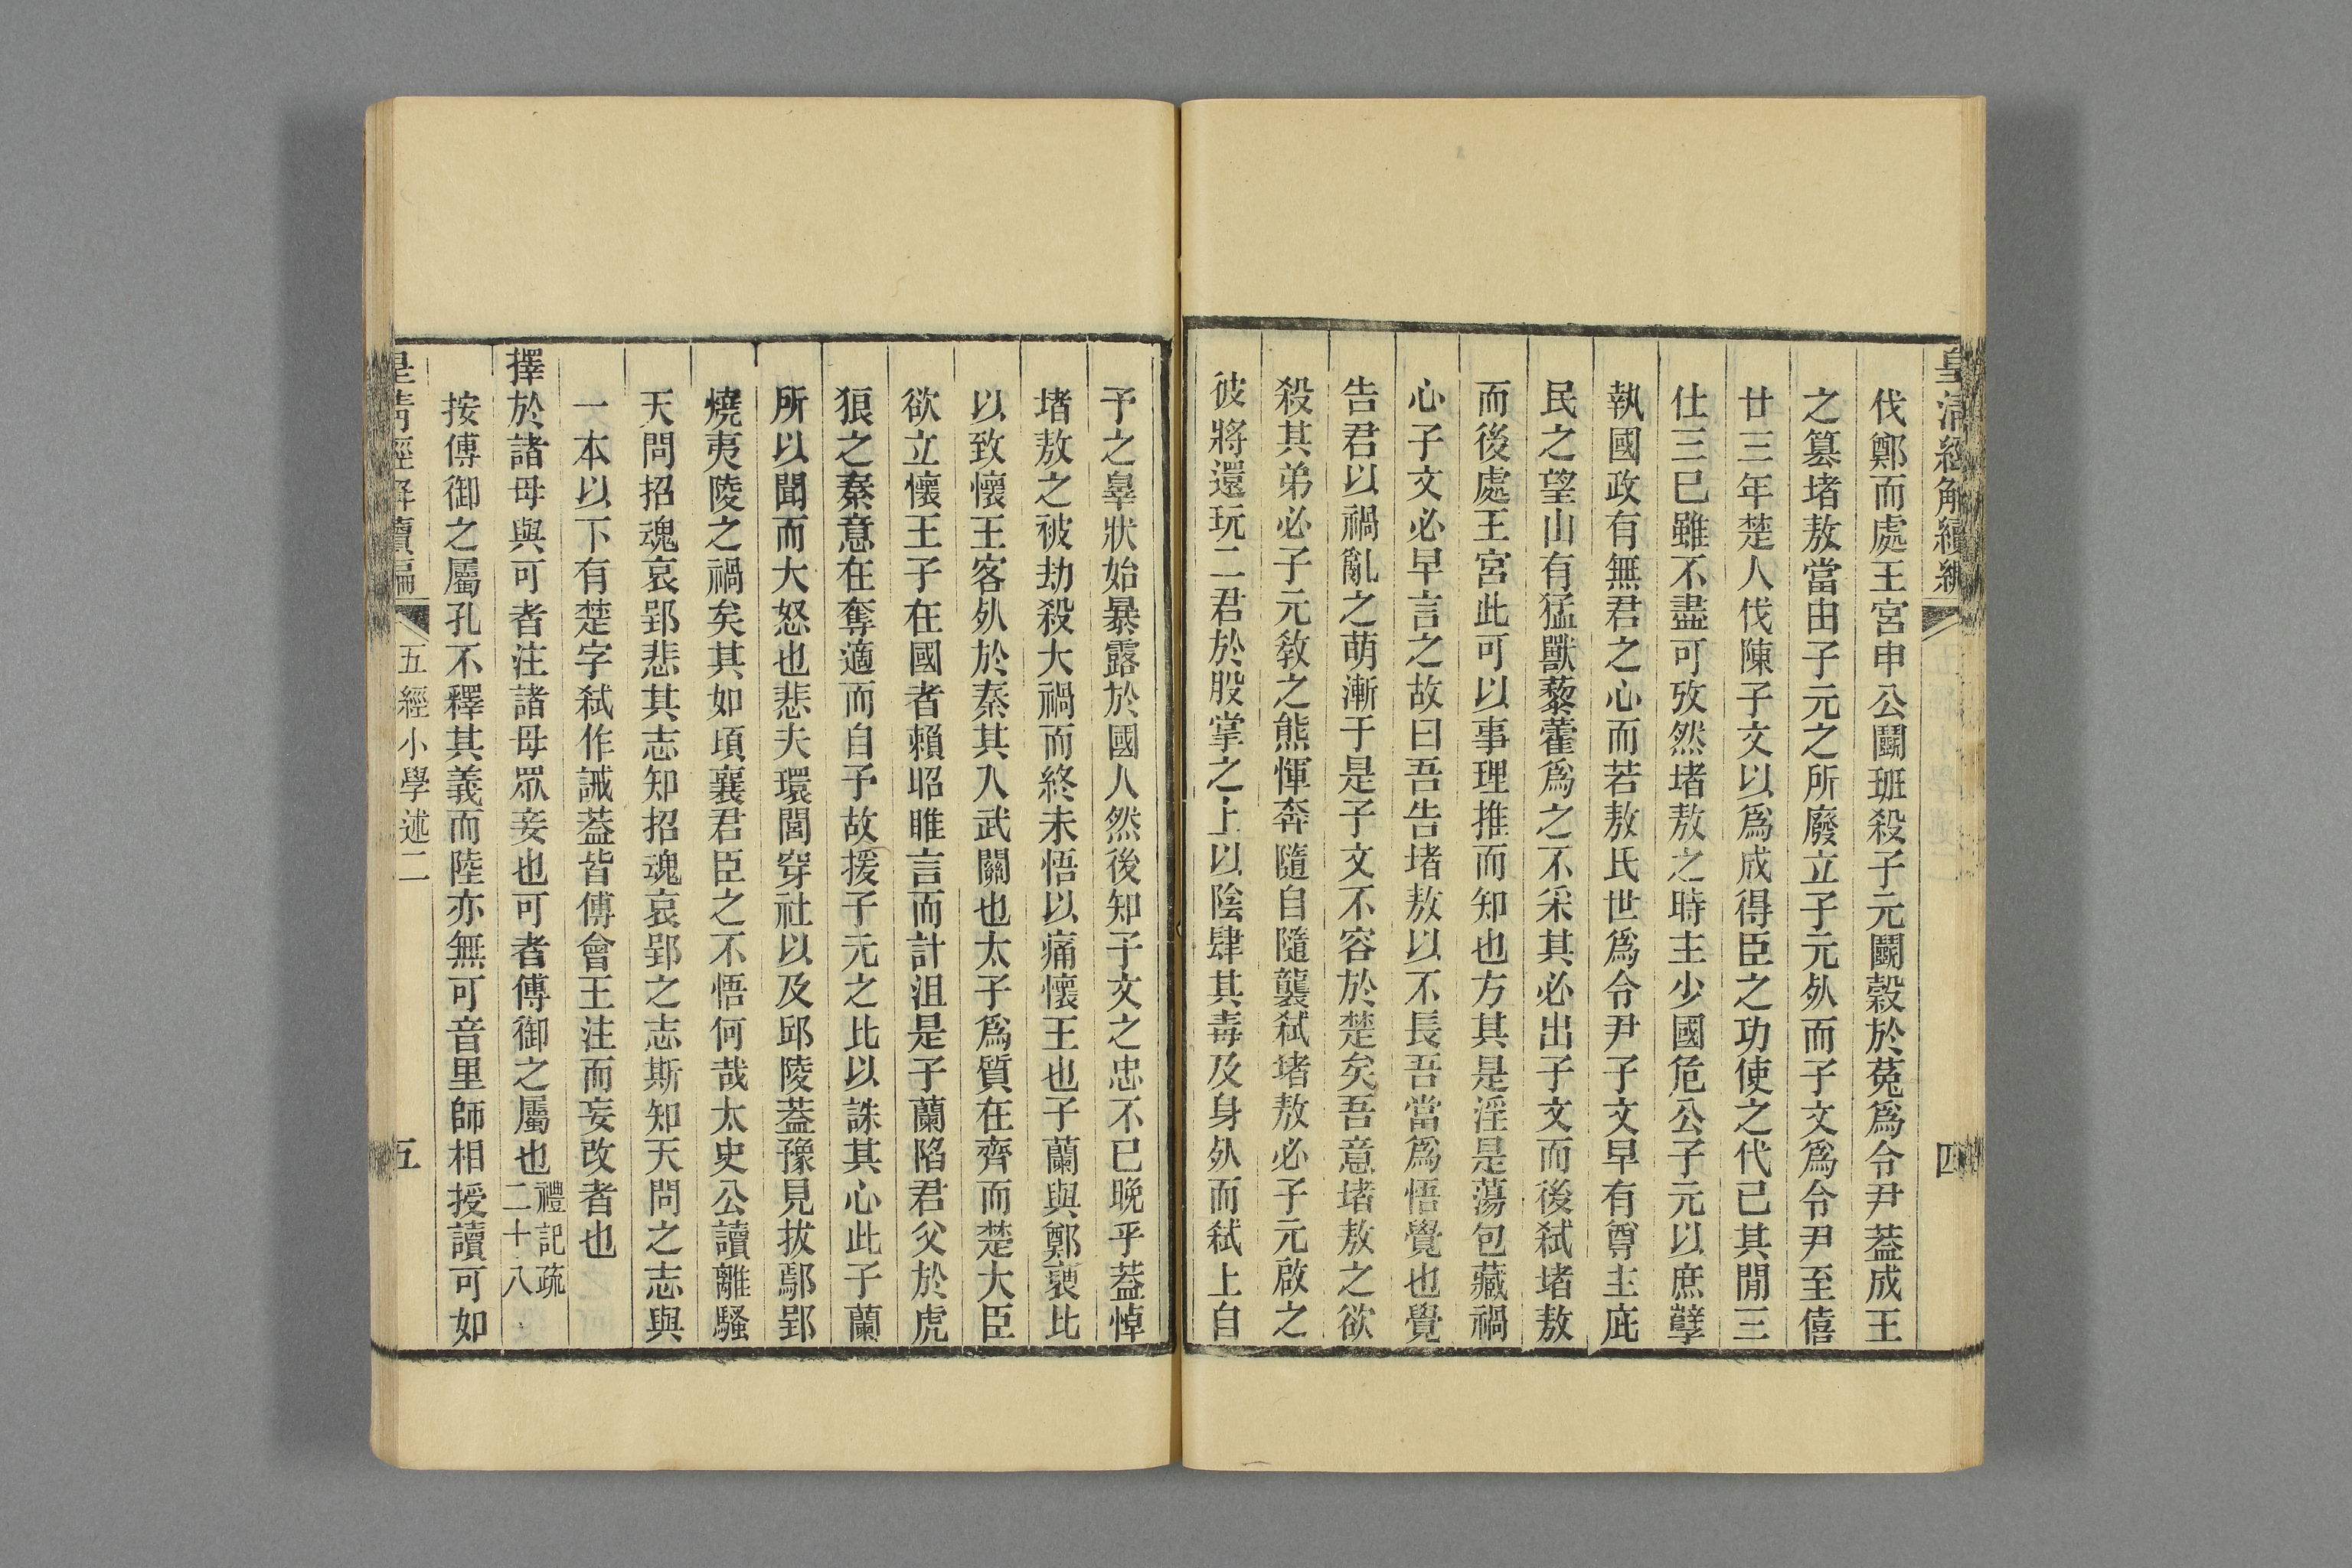 皇清經解續編
四
伐鄭而處王宮申公鬬班殺子元鬬穀於菟爲令尹葢成王
之篡堵敖當由子元之所廢立子元㱙而子文爲令尹至僖
廿三年楚人伐陳子文以爲成得臣之功使之代已其閒三
仕三已雖不盡可攷然堵敖之時主少國危公子元以庶孽
執國政有無君之心而若敖氏世爲令尹子文早有尊主庇
民之望山有猛獸藜藿爲之不采其必出子文而後弑堵敖
而後處王宮此可以事理推而知也方其是淫是蕩包藏禍
心子文必早言之故曰吾告堵敖以不長吾當爲悟覺也覺
告君以禍亂之萌漸于是子文不容於楚矣吾意堵敖之欲
殺其弟必子元敎之熊惲奔隨自隨襲弑堵敖必子元啟之
彼將還玩二君於股掌之上以陰肆其毒及身㱙而弑上自
予之辠狀始暴露於國人然後知子文之忠不已晚乎葢悼
堵敖之被劫殺大禍而終未悟以痛懷王也子蘭與鄭褏比
以致懷王客㱙於秦其入武關也太子爲質在齊而楚大臣
欲立懷王子在國者賴昭睢言而計沮是子蘭陷君父於虎
狼之秦意在奪適而自予故援子元之比以誅其心此子蘭
所以聞而大怒也悲夫環閭穿社以及邱陵葢豫見拔鄢郢
燒夷陵之禍矣其如頃襄君臣之不悟何哉太史公讀離騷
天問招魂哀郢悲其志知招魂哀郢之志斯知天問之志與
一本以下有楚字弑作誡葢皆傅會王注而妄改者也
擇於諸母與可者注諸母眾妾也可者傅御之屬也禮記疏二十八
按傅御之屬孔不釋其義而陸亦無可音里師相授讀可如
皇清經解續編
五經小學述二
五